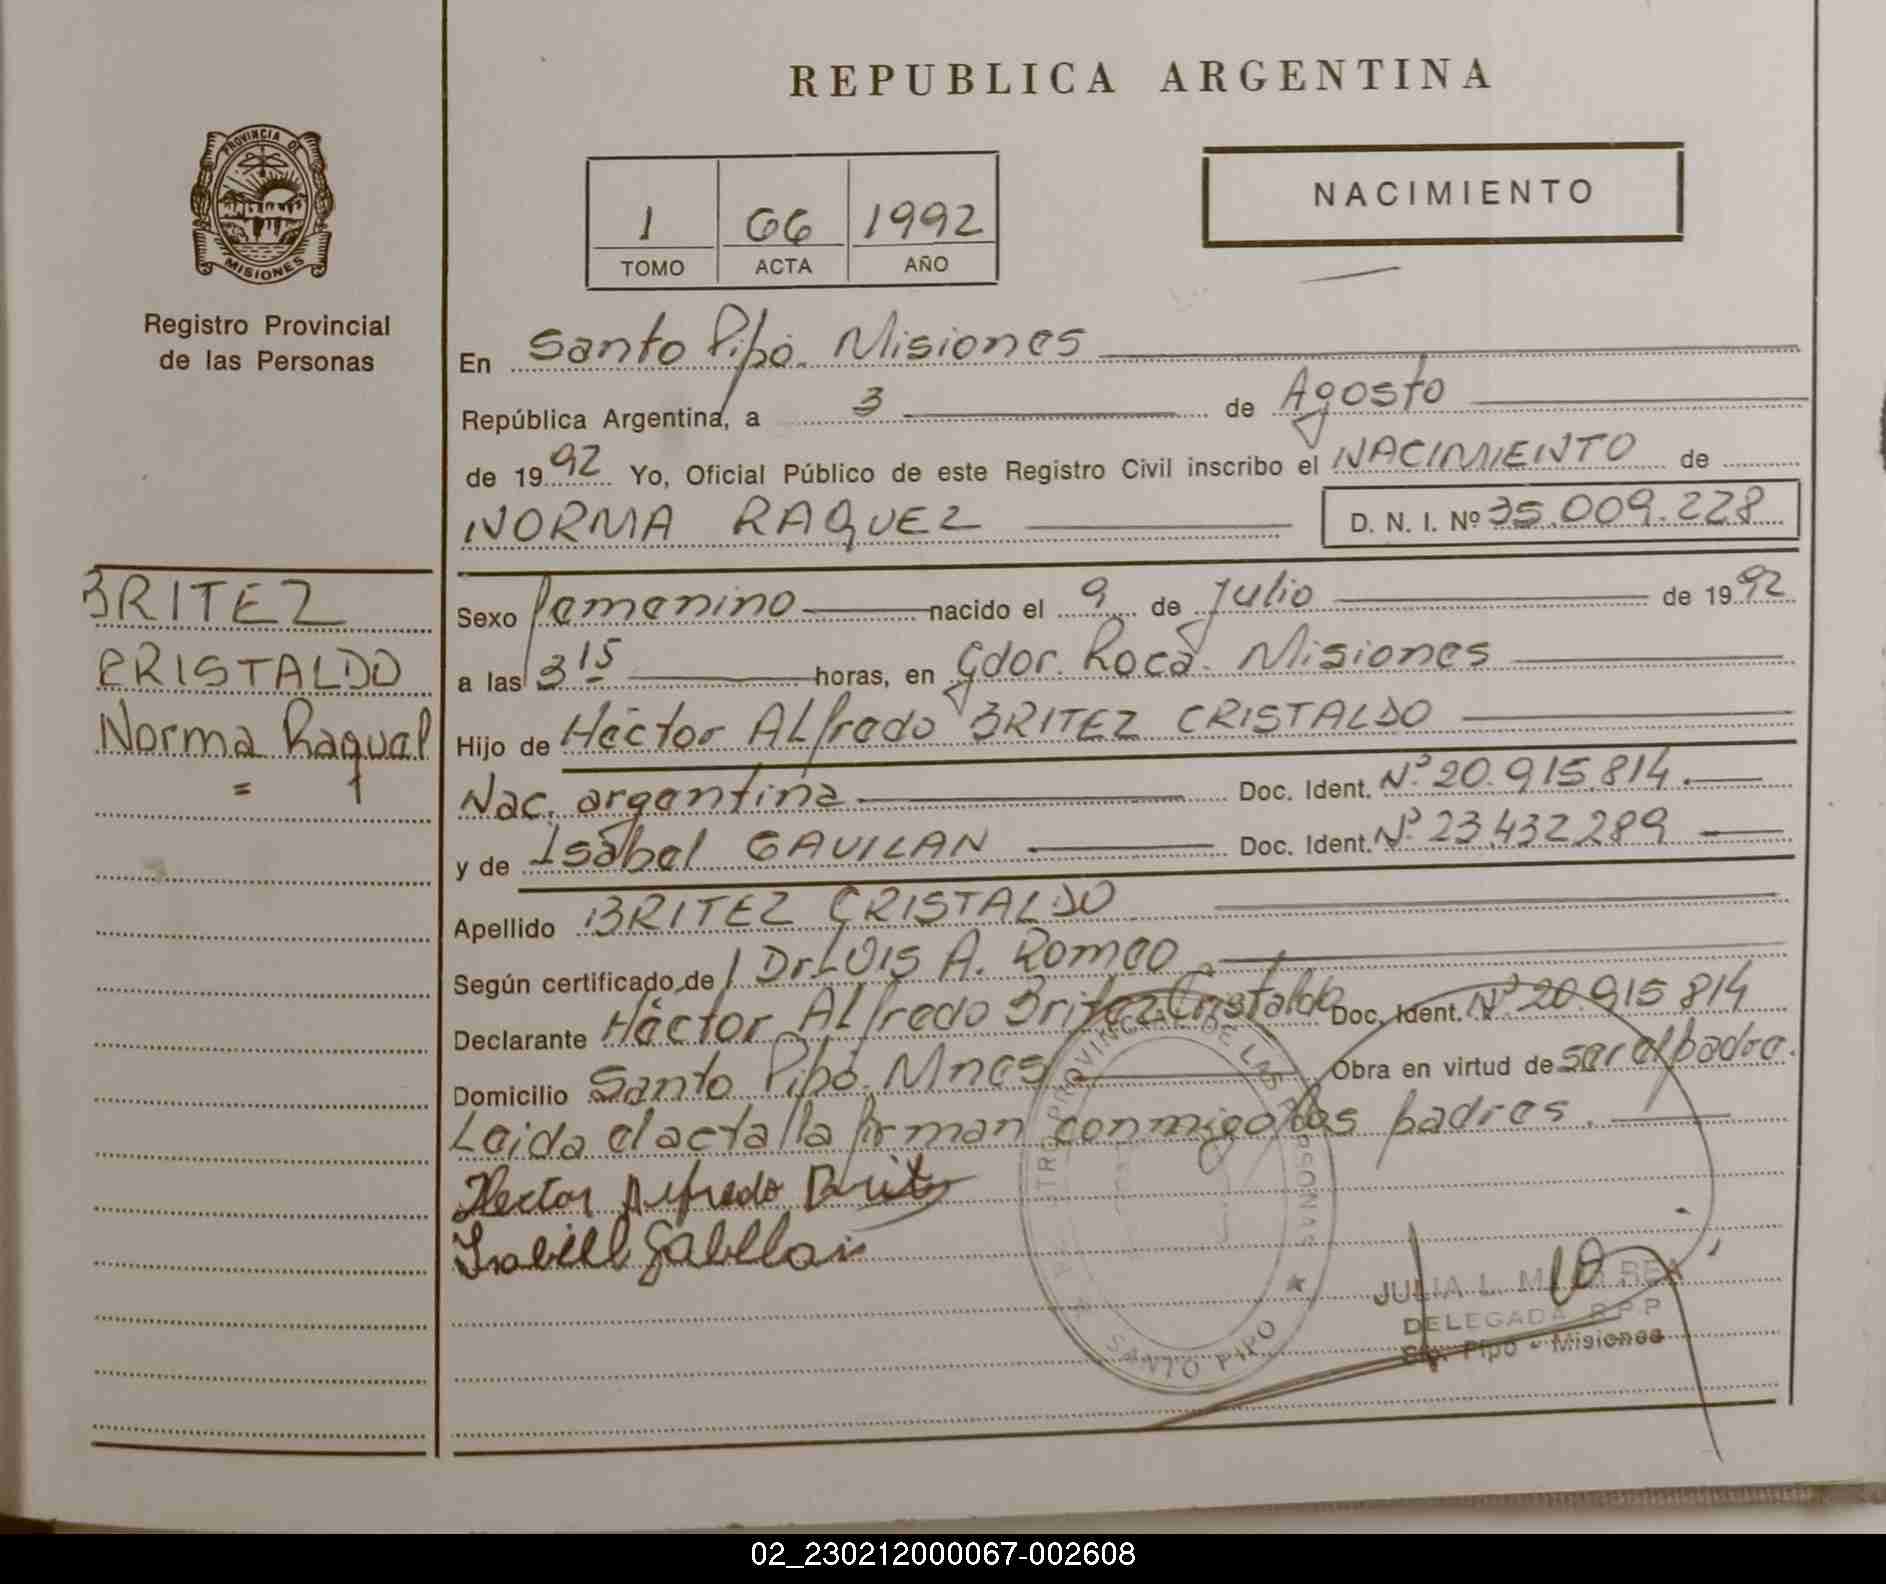 REPUBLICA ARGENTINA
PROVINCIA DE
MISIONES
Registro Provincial
de las Personas
1 66 1992
TOMO ACTA AÑO
NACIMIENTO
En Santo Pipó. Misiones
República Argentina, a 3 de Agosto
de 1992 Yo, Oficial Público de este Registro Civil inscribo el NACIMIENTO de
NORMA RAQUEL D. N. I. Nº 35.009.228
BRITEZ
CRISTALDO
Norma Raquel
=
Sexo femenino nacido el 9 de Julio de 1992
a las 3 15 horas, en Gdor. Roca. Misiones
Hijo de Héctor Alfredo BRITEZ CRISTALDO
Nac. argentina Doc. Ident. Nº 20.915.814.
y de Isabel GAVILAN Doc. Ident. Nº 23.432.289
Apellido BRITEZ CRISTALDO
Según certificado de Dr Luis A. Romeo
Declarante Héctor Alfredo Britez Cristaldo Doc. Ident. Nº 20.915.814
Domicilio Santo Pipó. Mnes Obra en virtud de ser el padre.
Leida el acta la firman conmigo los padres.
Hector Alfredo Britez
SANTO PIPO
JULIA L.
DELEGADA R.P.P
Sto. Pipó - Misiones
02_230212000067-002608